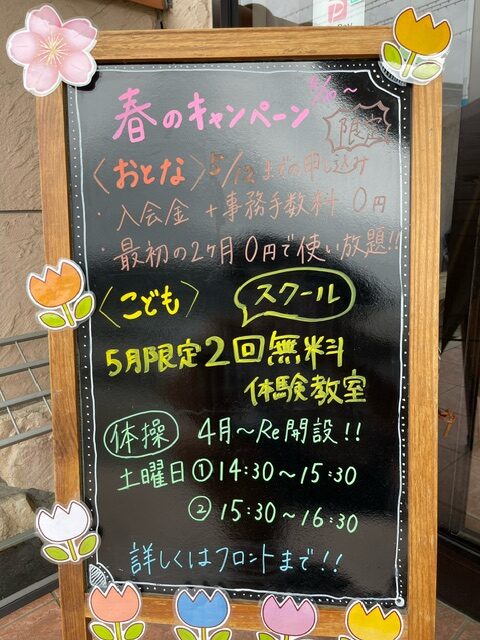 春のキャンペーン
限定
〈おとな〉5/12までの申し込み
・入会金＋事務手数料 0円
・最初の2ヶ月0円で使い放題!!
〈こども〉 スクール
5月限定2回無料
体験教室
体操 4月～Re開設!!
土曜日①14:30～15:30
②15:30～16:30
詳しくはフロントまで!!